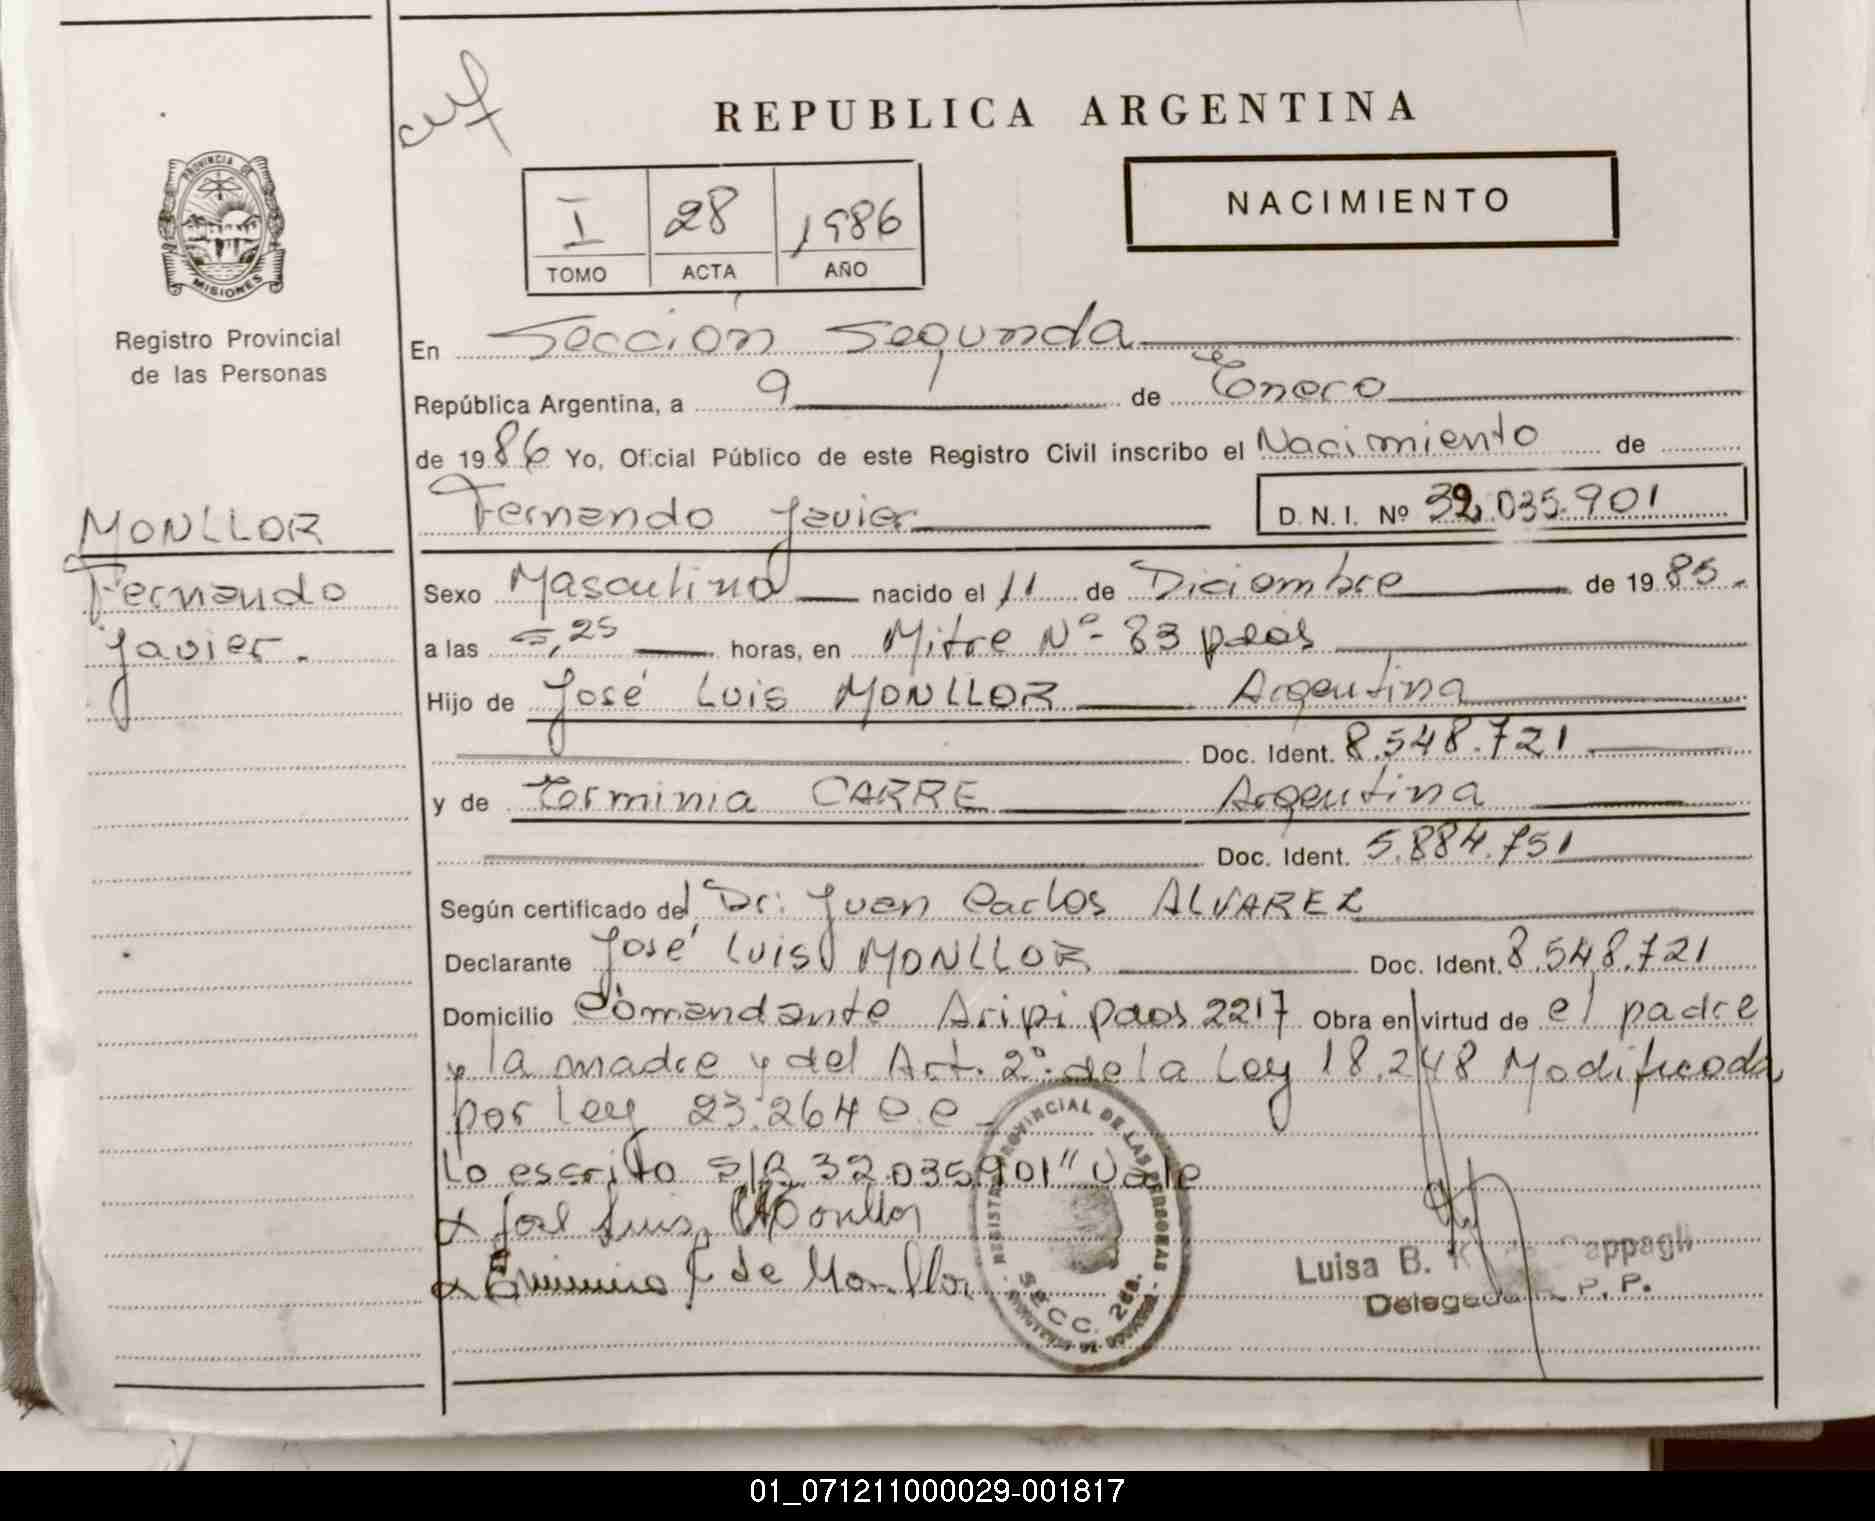 REPUBLICA ARGENTINA
PROVINCIA DE
MISIONES
Registro Provincial
de las Personas
I 28 1986
TOMO ACTA AÑO
NACIMIENTO
En Sección Segunda
República Argentina, a 9 de Enero
de 1986 Yo, Oficial Público de este Registro Civil inscribo el Nacimiento de
Fernando Javier D.N.I. Nº 32.035.901
MONLLOR
Fernando
Javier.
Sexo Masculino nacido el 11 de Diciembre de 1985.
a las 5,25 horas, en Mitre Nº- 83 pdas
Hijo de José Luis MONLLOR Argentina
Doc. Ident. 8.548.721
y de Erminia CARRE Argentina
Doc. Ident. 5.884.751
Según certificado del Dr: Juan Carlos ALVAREZ
Declarante José Luis MONLLOR Doc. Ident. 8.548.721
Domicilio Comandante pdas 2217 Obra en virtud de el padre
y la madre y del Art. 2º de la Ley 18.248 Modificada
por Ley 23.264
Lo escrito S/R 32.035.901" Vale
José Luis Monllor
de Monllor
REGISTRO PROVINCIAL DE LAS PERSONAS
SECC. 2da.
Luisa B. Cappagli
Delegada R. P. P.
01_071211000029-001817